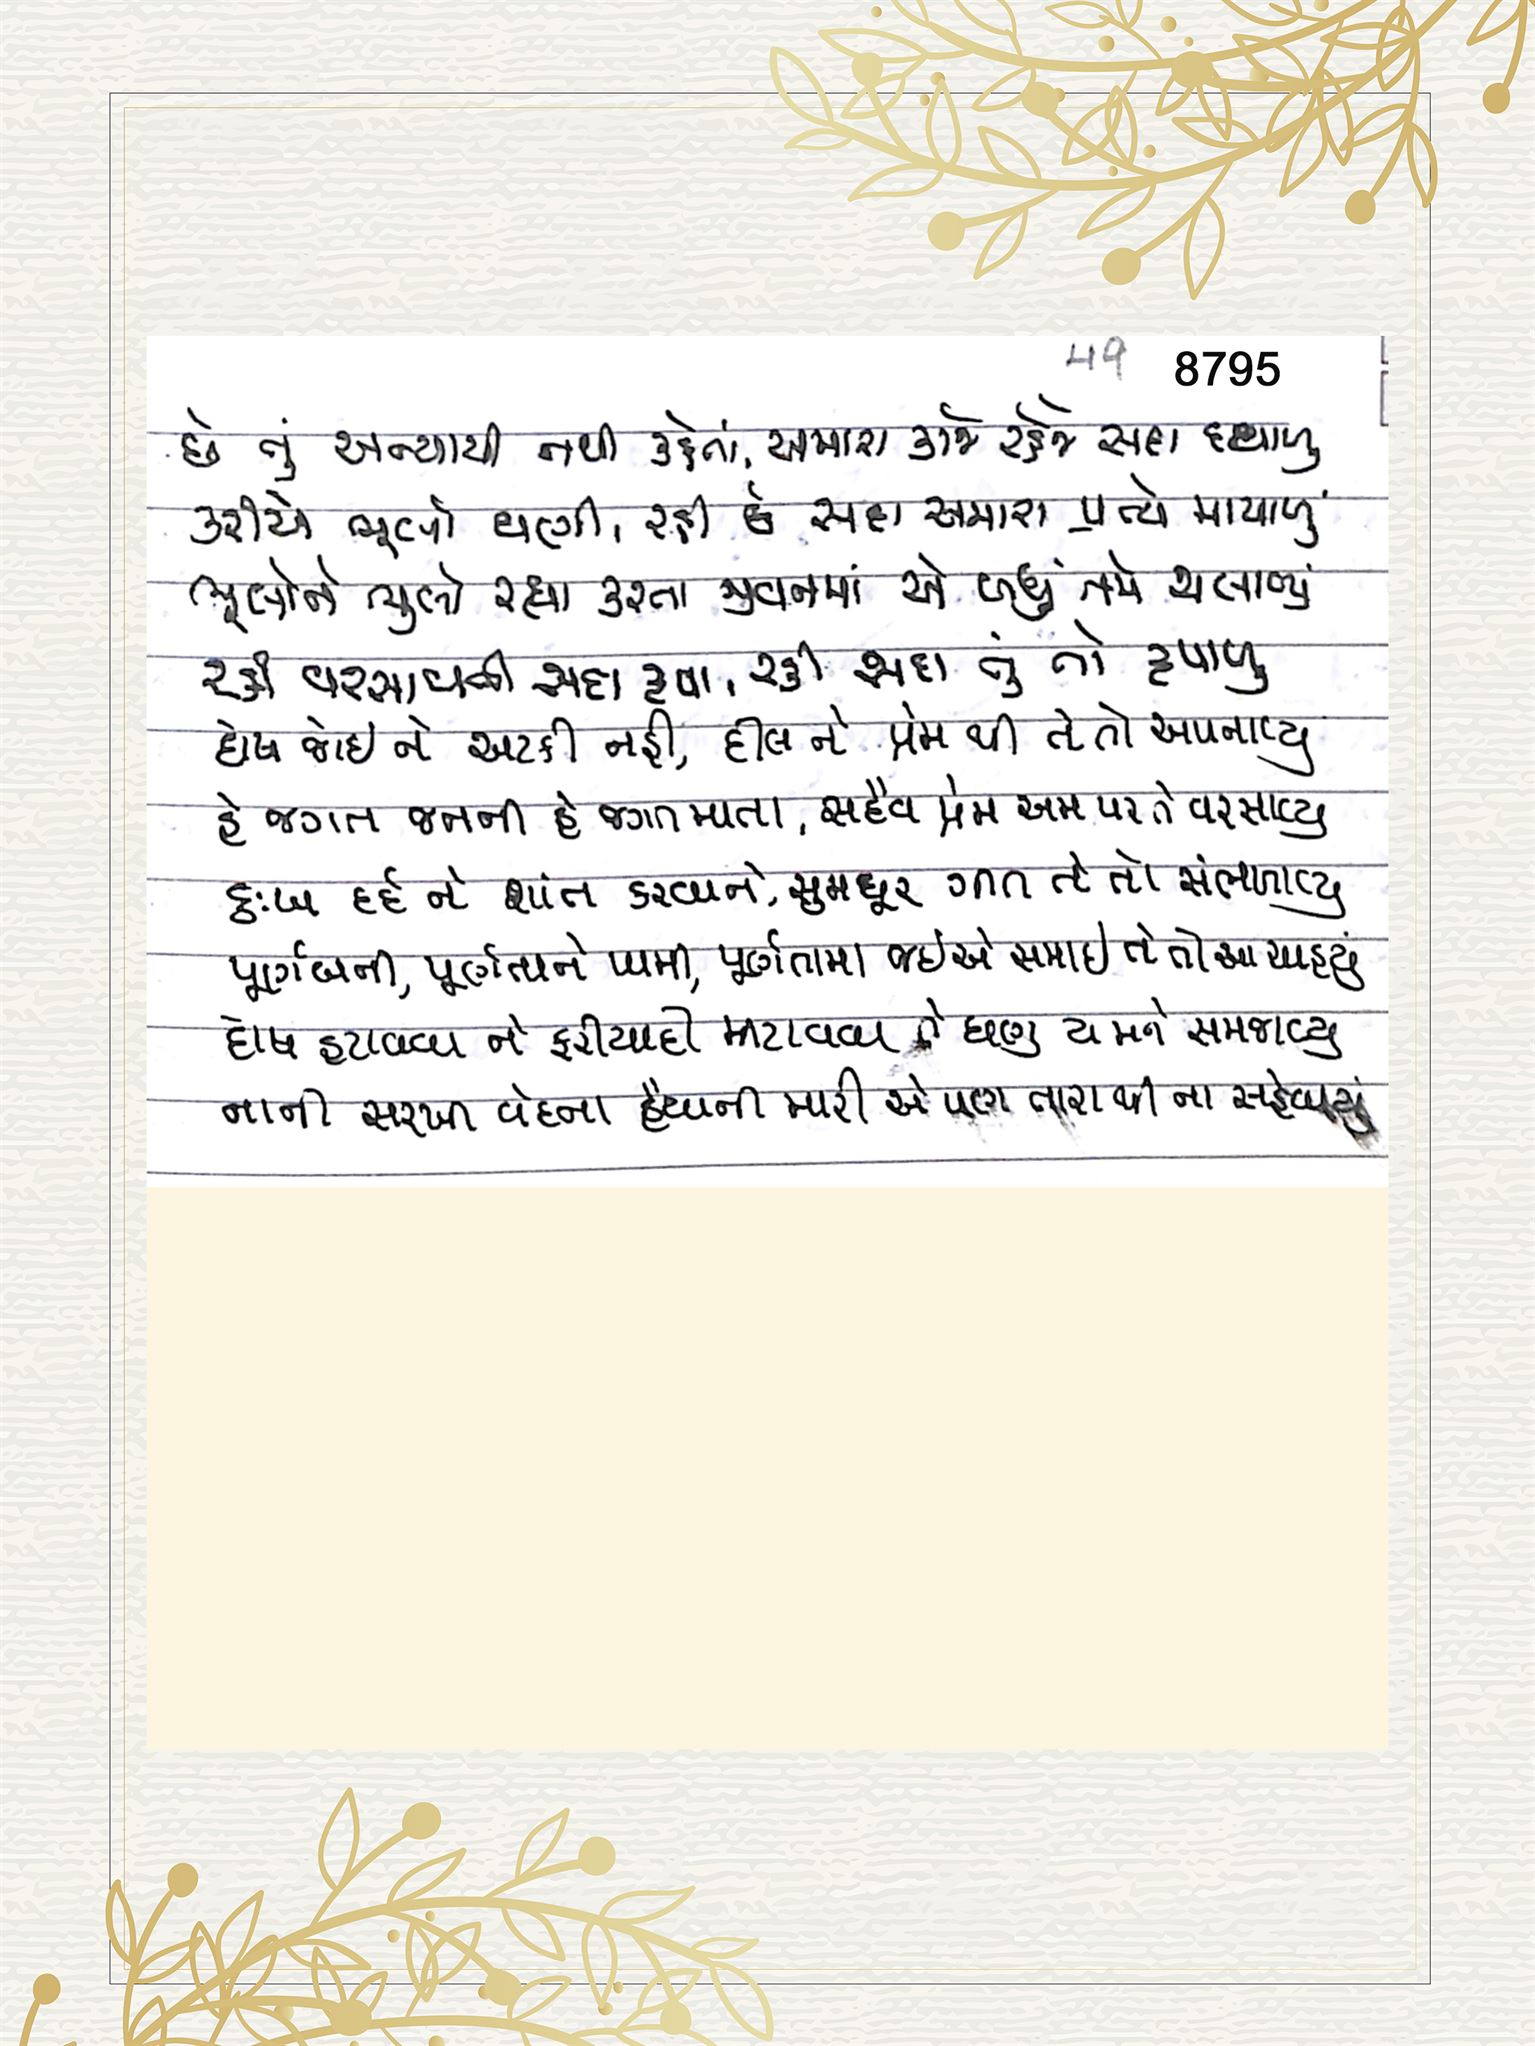 49 8795
છે તું અન્યાયી નથી કહેતાં, અમારા કાજે રહેજે સદા દયાળુ
કરીએ ભૂલો ઘણી, રહી છે સદા અમારા પ્રત્યે માયાળું
ભૂલોને ભુલો રહ્યા કરતા જીવનમાં એ બધું તમે ચલાવ્યું
રહી વરસાવતી સદા કૃપા, રહી સદા તું તો કૃપાળુ
દોષ જોઇ ને અટકી નહી, દીલ ને પ્રેમ થી તે તો અપનાવ્યુ
હે જગત જનની હે જગત માતા, સદૈવ પ્રેમ અમ પર તે વરસાવ્યુ
દુઃખ દર્દ ને શાંત કરવાને, સુમધૂર ગીત તે તો સંભળાવ્યુ
પૂર્ણ બની, પૂર્ણતાને પામી, પૂર્ણતામા જઈએ સમાઇ તે તો આ ચાહ્યું
દોષ હટાવવા ને ફરીયાદી મીટાવવા તે ઘણુ ય મને સમજાવ્યુ
નાની સરખી વેદના હૈયાની મારી એ પણ તારા થી ના સહેવાયું